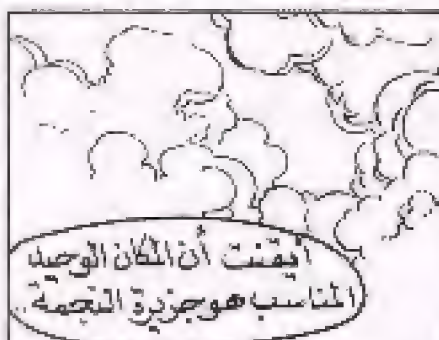 أيقنت أن المكان الوحيد
المناسب هو جزيرة النجمة